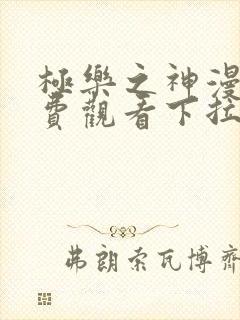 極樂之神漫
費觀看下拉
弗朗索瓦博齊